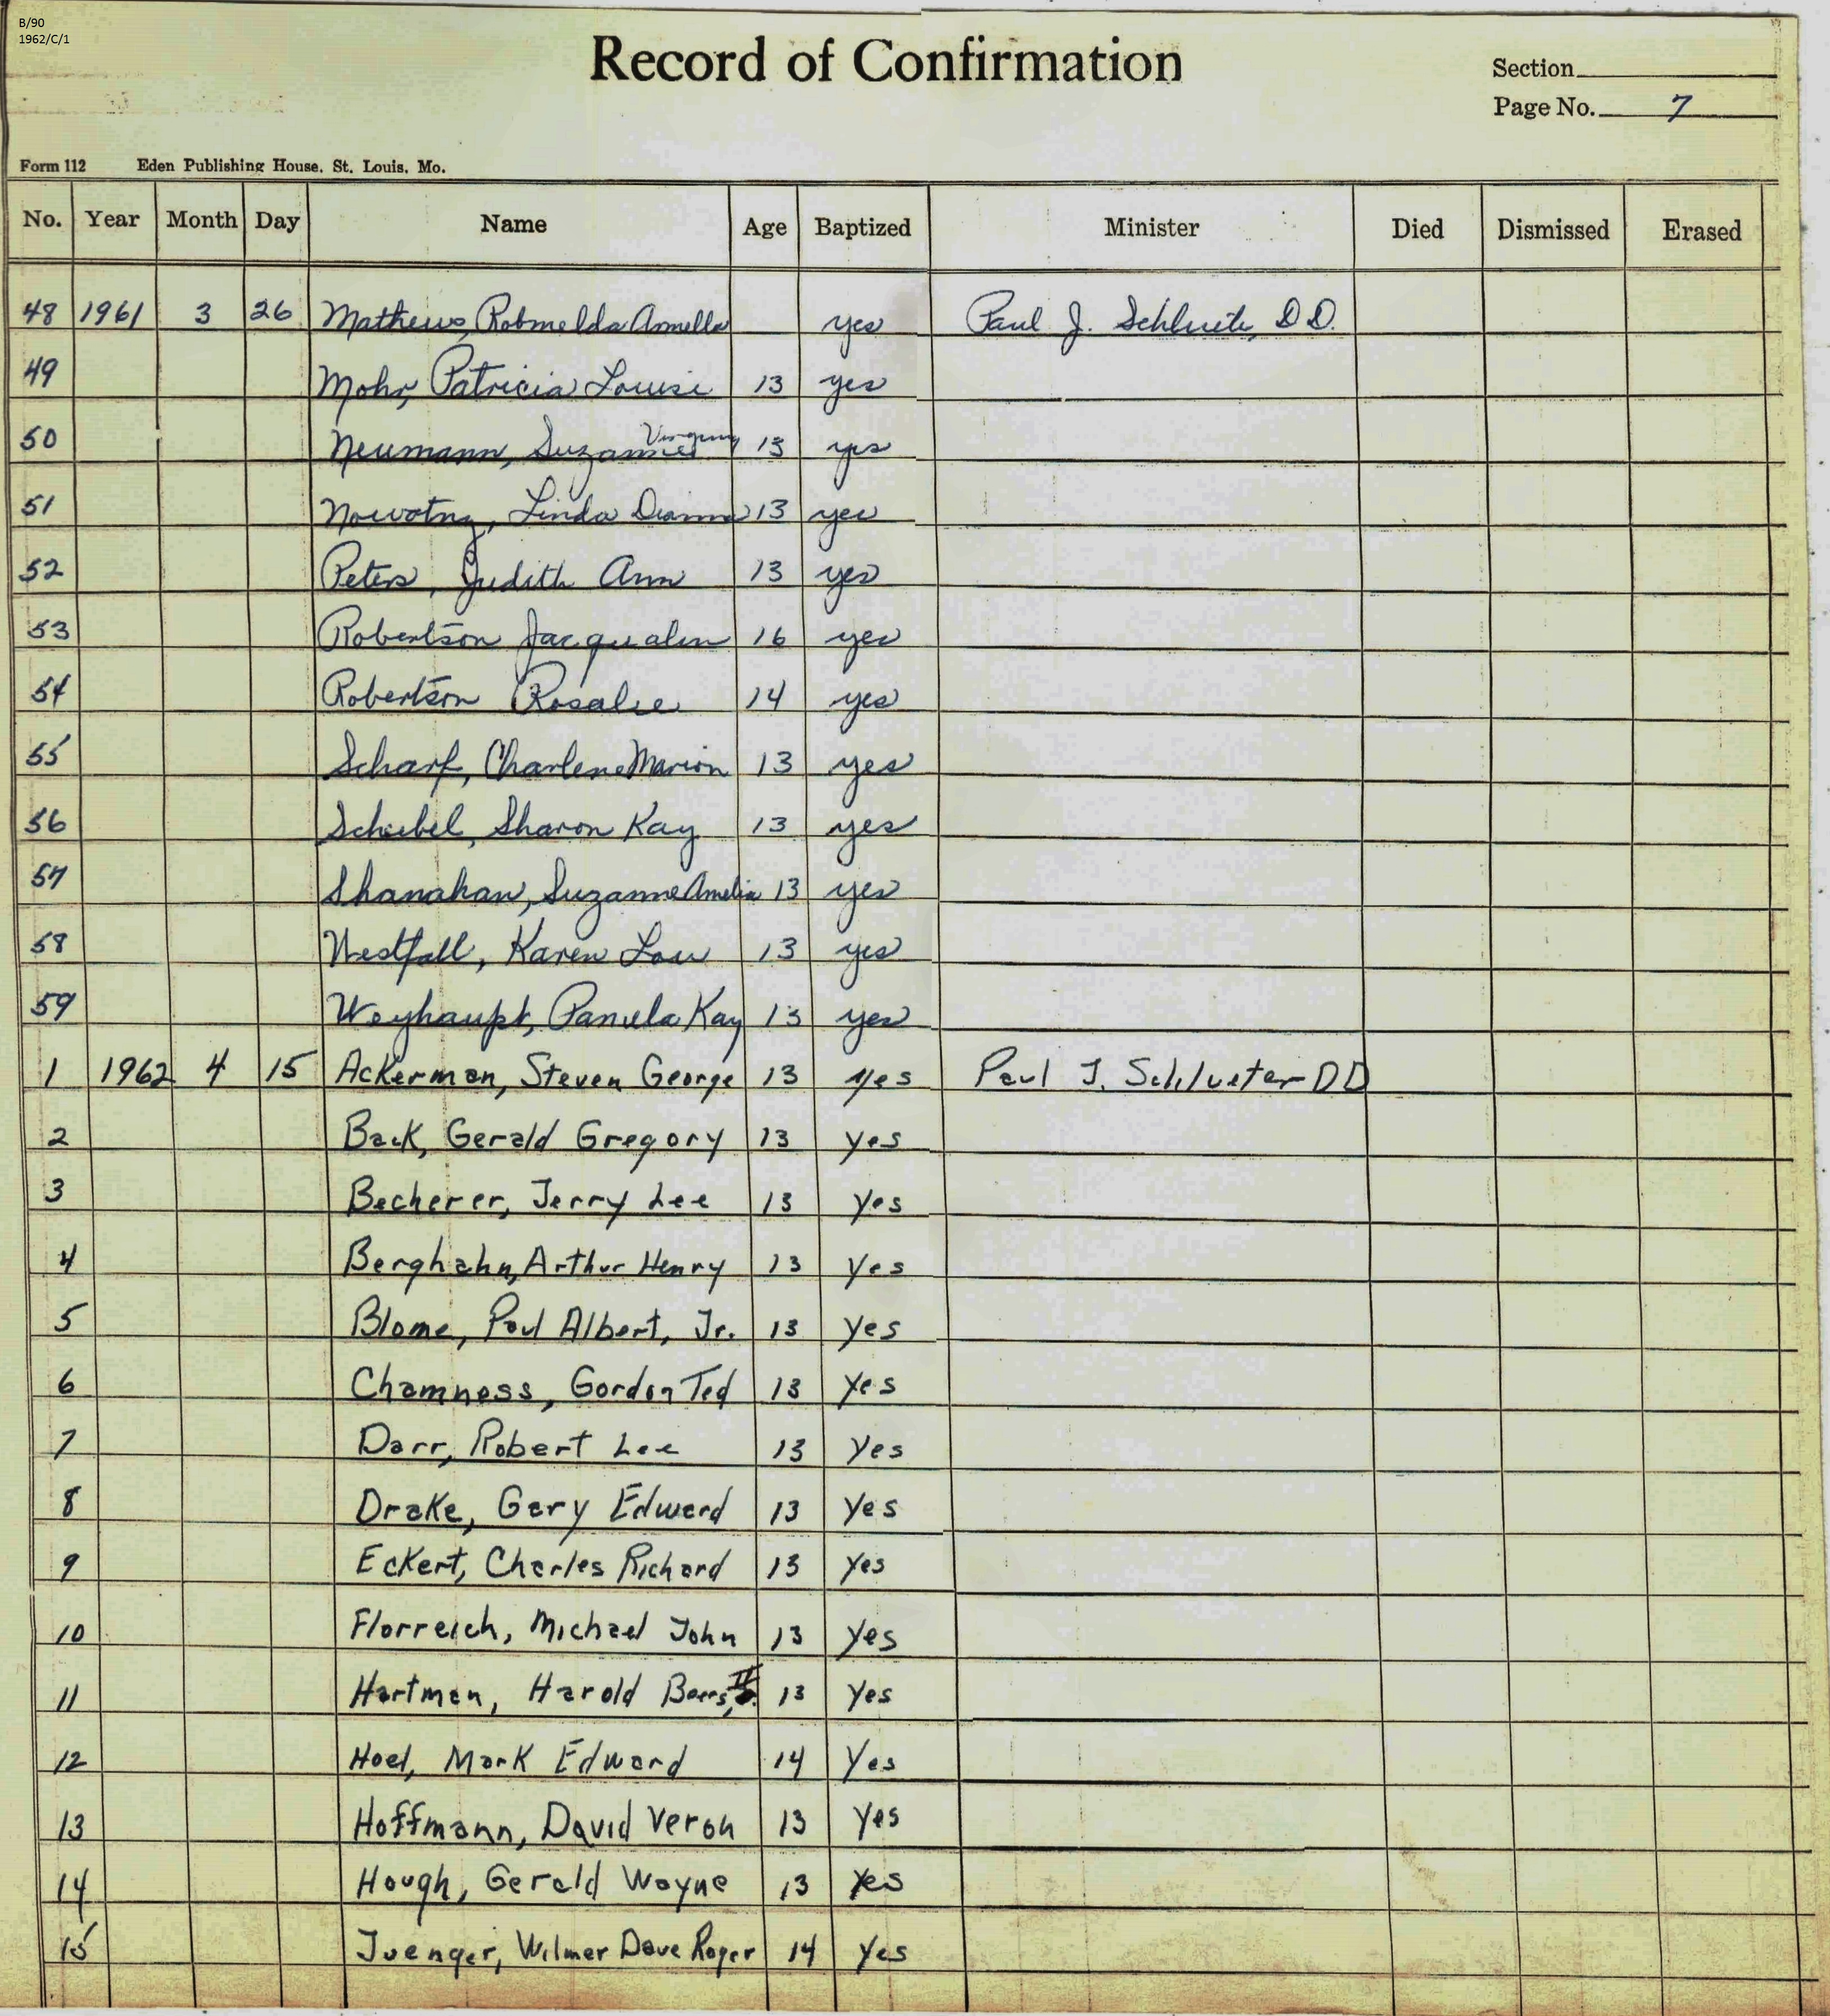 B/90
1962/C/1
Record of Confirmation
Section
Page No. 7
Form 112 Eden Publishing House, St. Louis, Mo.
No. Year Month Day Name Age Baptized Minister Died Dismissed Erased
48 1961 3 26 Mathews, yes Paul J. Schlueter, D.D.
49 Mohr, Patricia Louise 13 yes
50 Neumann, Suzanne 13 yes
51 Nowotny, Linda Dianna 13 yes
52 Peters, Judith Ann 13 yes
53 Robertson Jacqualin 16 yes
54 Robertson Rosalie 14 yes
55 Scharf, Charlene Marion 13 yes
56 Scheibel, Sharon Kay 13 yes
57 Shanahan, Suzanne Amelia 13 yes
58 Westfall, Karen Lou 13 yes
59 Weyhaupt, Pamela Kay 13 yes
1 1962 4 15 Ackerman, Steven George 13 yes Paul J. Schlueter DD
2 Back, Gerald Gregory 13 yes
3 Becherer, Jerry Lee 13 yes
4 Berghahn, Arthur Henry 13 yes
5 Blome, Paul Albert, Jr. 13 yes
6 Chamness, Gordon Ted 13 yes
7 Darr, Robert Lee 13 yes
8 Drake, Gary Edward 13 yes
9 Eckert, Charles Richard 13 yes
10 Florreich, Michael John 13 yes
11 Hartman, Harold Beers, II 13 yes
12 Hoel, Mark Edward 14 yes
13 Hoffmann, David Veron 13 yes
14 Hough, Gerald Wayne 13 yes
15 Juenger, Wilmer Dave Roger 14 yes